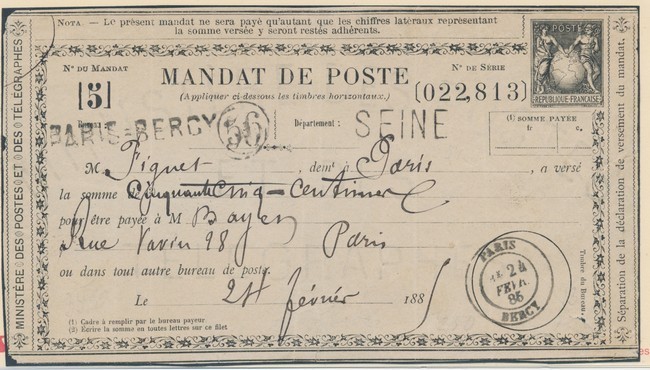 NOTA. — Le présent mandat ne sera payé qu'autant que les chiffres latéraux représentant
la somme versée y seront restés adhérents.
POSTE
RÉPUBLIQUE FRANÇAISE
No DU MANDAT
MANDAT DE POSTE
No DE SÉRIE
[5]
(Appliquer ci-dessous les timbres horizontaux.)
(022,813)
PARIS-BERCY
56
Département :
SEINE
(1) SOMME PAYÉE
fr. c.
M. Piguet, demt à Paris, a versé
la somme de Cinquante cinq centimes
pour être payée à M Bayen
Rue Vavin 28 Paris
ou dans tout autre bureau de poste.
Le 24 février 1885
(1) Cadre à remplir par le bureau payeur
(2) Écrire la somme en toutes lettres sur ce filet
PARIS
24
FEVR.
85
BERCY
Timbre du Bureau.
MINISTÈRE DES POSTES ET DES TÉLÉGRAPHES
Séparation de la déclaration de versement du mandat.